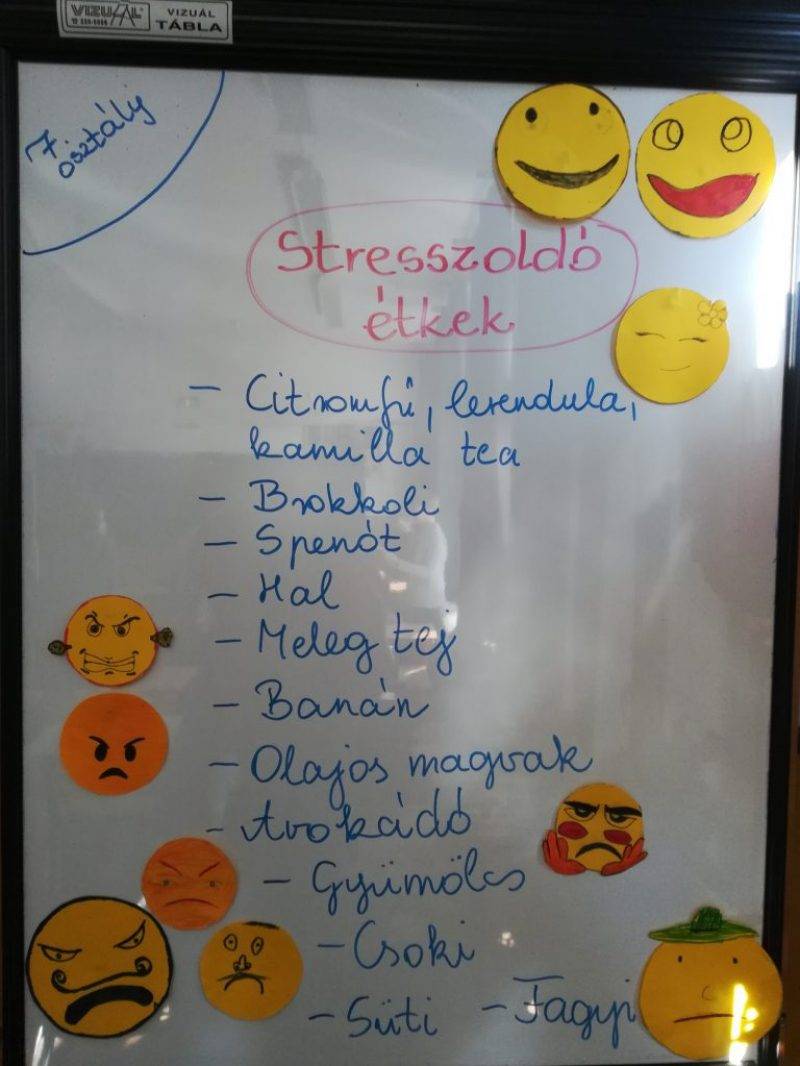 VIZUÁL
VIZUÁL
TÁBLA
7. osztály
Stresszoldó
étkek
- Citromfű, levendula,
kamilla tea
- Brokkoli
- Spenót
- Hal
- Meleg tej
- Banán
- Olajos magvak
- Avokádó
- Gyümölcs
- Csoki
- Süti - Fagyi